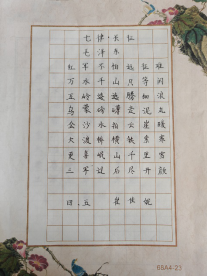 七律·长征
毛泽东
红军不怕远征难
万水千山只等闲
五岭逶迤腾细浪
乌蒙磅礴走泥丸
金沙水拍云崖暖
大渡桥横铁索寒
更喜岷山千里雪
三军过后尽开颜
四.五